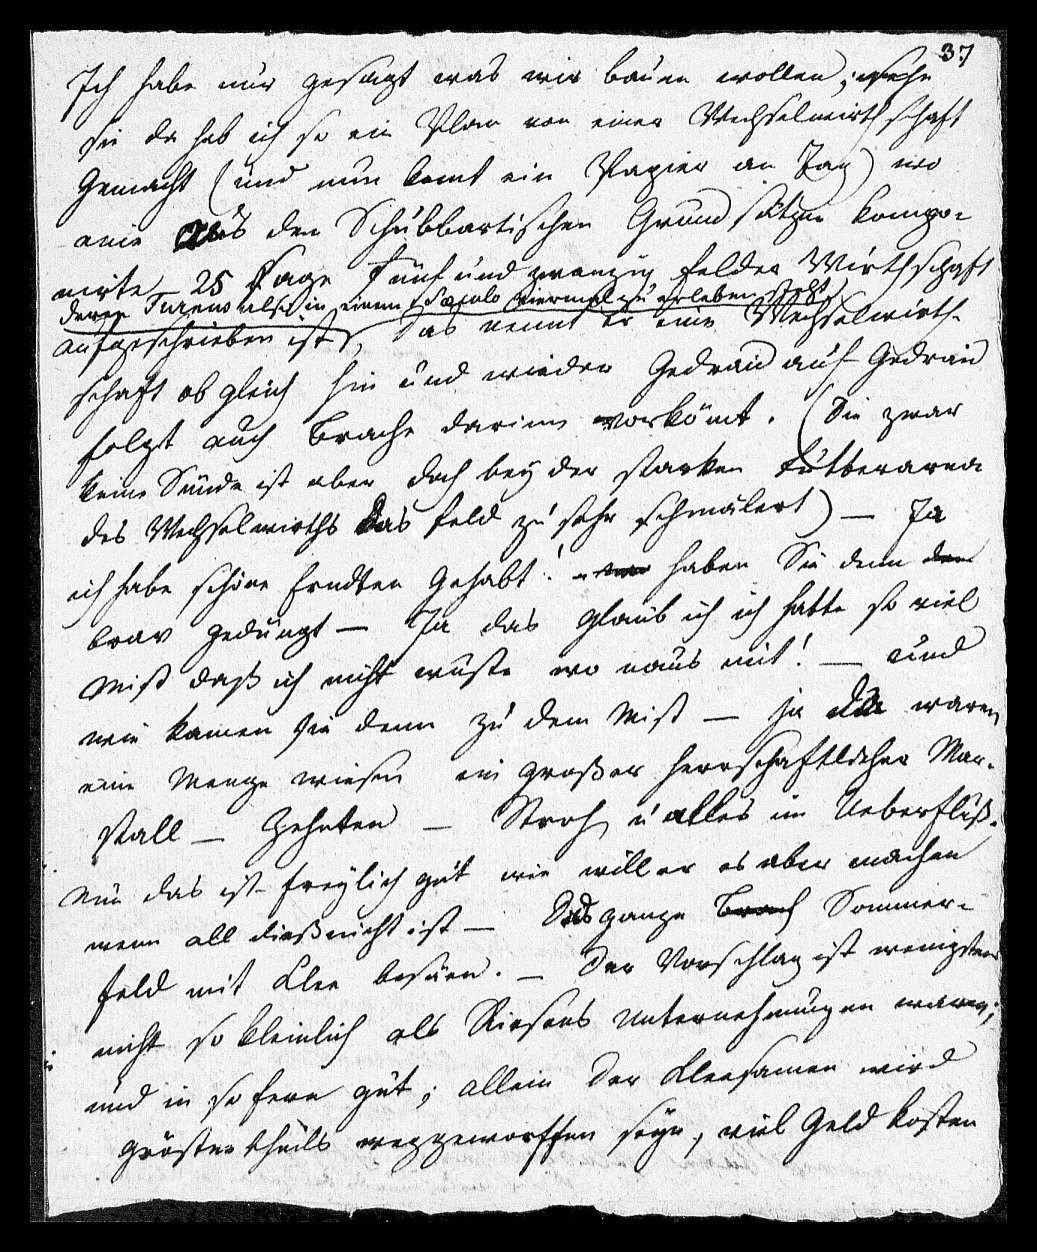 37
Ich habe nur gesagt was wir bauen wollen; sehe
sie da hab ich so ein Plan von einer Wechselwirthschaft
Gemacht (und nun komt ein Papier an Tag) wo
eine aus den Schubbartischen Grundsätzen kompo-
nirte 25 sage fünf und zwanzig felder Wirthschaft
deren Turnus also in einem Sæculo viermal zu erleben steht
aufgeschrieben ist, das nennt er eine Wechselwirth-
schaft ob gleich hin und wieder Gedraid auf Gedraid
folgt auch Brache darinn vorkömt. (Die zwar
keine Sünde ist aber doch bey der starken
des Wechselwirths das feld zu sehr schmälert) — Ja
ich habe schöne Erndten Gehabt! haben Sie denn
brav gedüngt — Ja das glaub ich ich hatte so viel
Mist daß ich nicht wuste wo naus mit! — und
wie kamen sie denn zu dem Mist — ja da waren
eine Menge wiesen ein großer herrschaftlicher Mar-
stall — Zehnten — Stroh u alles im Ueberfluß.
Nun das ist freylich gut wie will er es aber machen
wenn all dieß nicht ist — Das ganze Brach Sommer-
feld mit Klee besäen. — Der Vorschlag ist wenigstens
nicht so kleinlich als Riesens Unternehmungen waren;
und in so fern gut; allein der Kleesamen wird
grösten theils weggeworffen seyn, viel Geld kosten